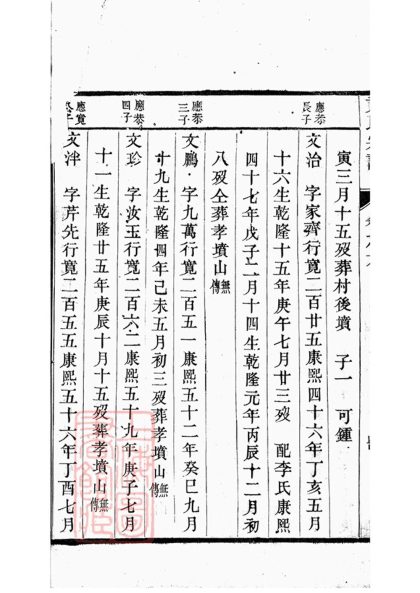 寅三月十五歿葬村後墳 子一 可鍾
應恭長子
文治 字家齊行寬二百廿五康熙四十六年丁亥五月
十六生乾隆十五年庚午七月廿三歿 配李氏康熙
四十七年戊子二月十四生乾隆元年丙辰十二月初
八歿仝葬孝墳山 無傳
應恭三子
文鵬 字九萬行寬二百五一康熙五十二年癸巳九月
十九生乾隆四年己未五月初三歿葬孝墳山 無傳
應恭四子
文珍 字汝玉行寬二百六二康熙五十九年庚子七月
十一生乾隆廿五年庚辰十月十五歿葬孝墳山 無傳
應寬
文泮 字芹先行寬二百五五康熙五十六年丁酉七月